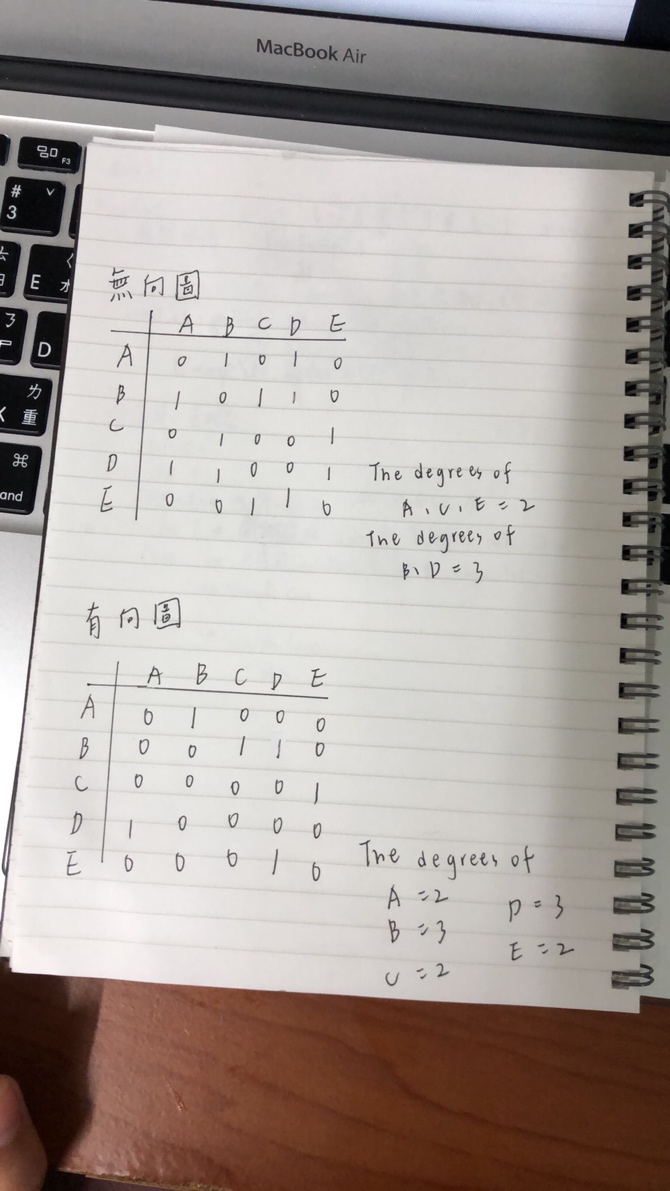 MacBook Air
F3
#
3
E
D
ㄉ
重
⌘
無向圖
A B C D E
A 0 1 0 1 0
B 1 0 1 1 0
C 0 1 0 0 1
D 1 1 0 0 1
E 0 0 1 1 0
The degrees of
A、C、E = 2
The degrees of
B、D = 3
有向圖
A B C D E
A 0 1 0 0 0
B 0 0 1 1 0
C 0 0 0 0 1
D 1 0 0 0 0
E 0 0 0 1 0
The degrees of
A = 2 D = 3
B = 3 E = 2
C = 2